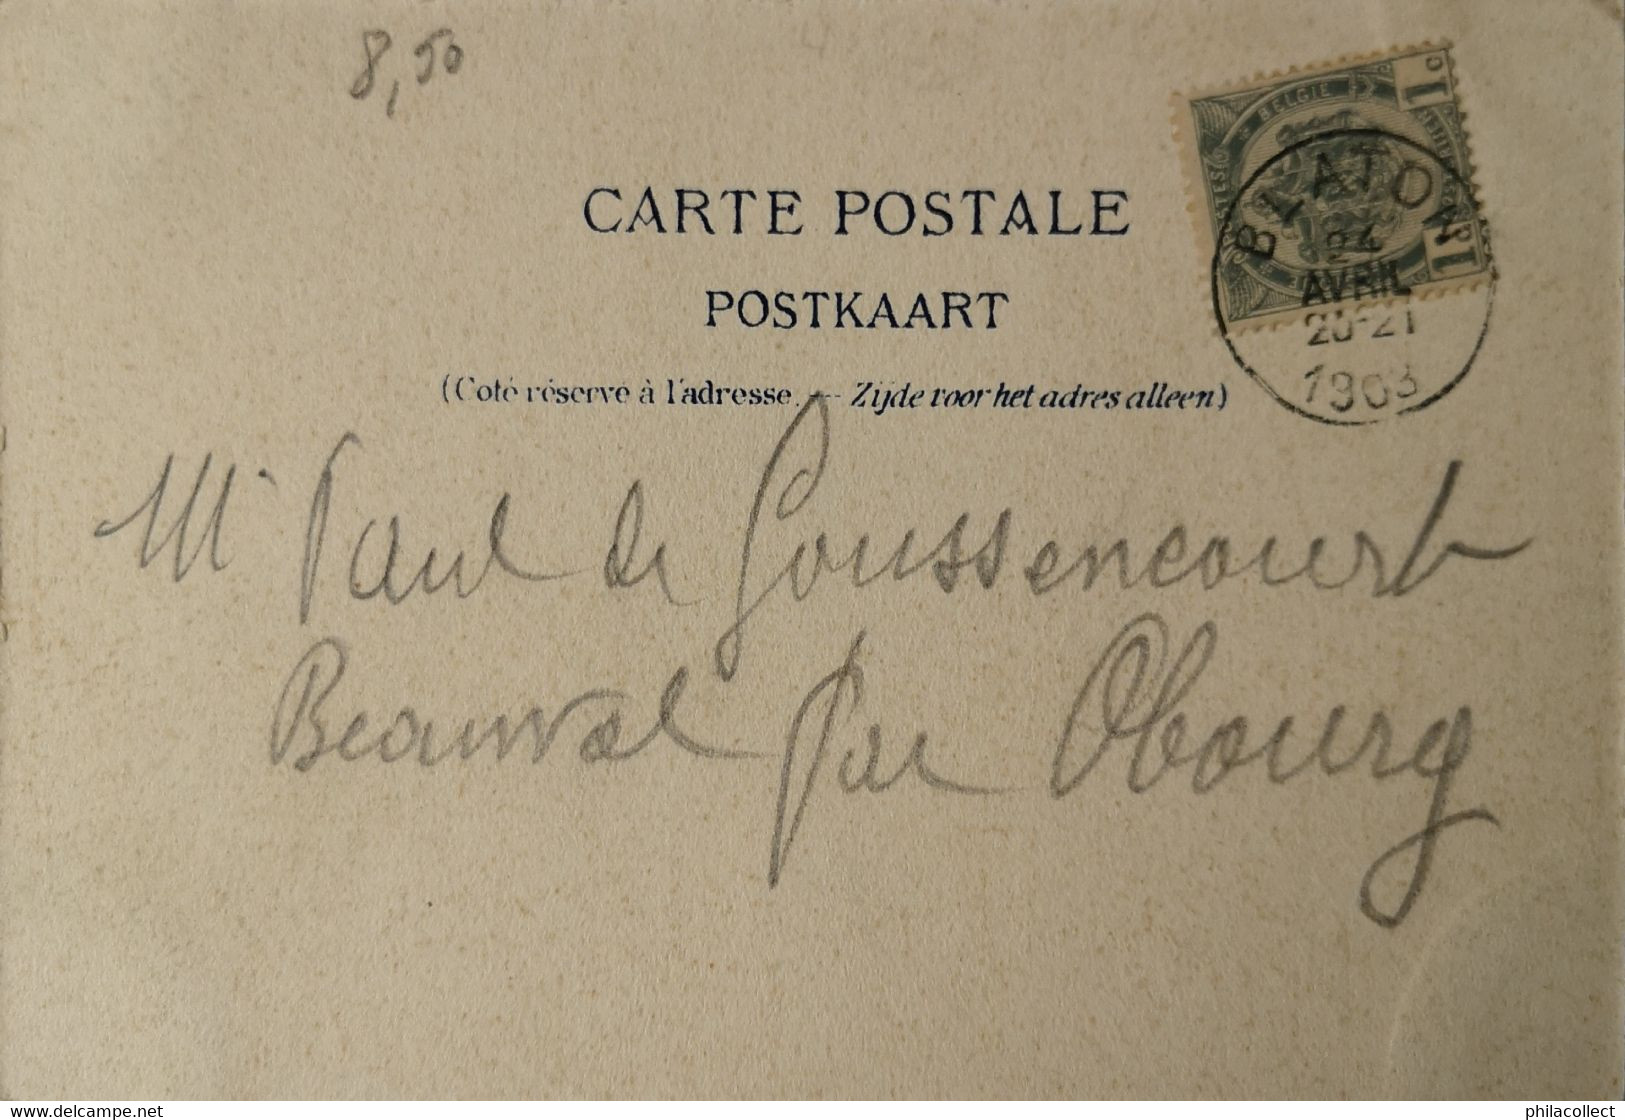 8,50
BELGIE
1c
BLATON
24
AVRIL
20-21
1903
CARTE POSTALE
POSTKAART
(Coté réservé à l'adresse. — Zijde voor het adres alleen)
Mr Paul de Goussencourt
Beauval par Obourg
delcampe.net
philacollect